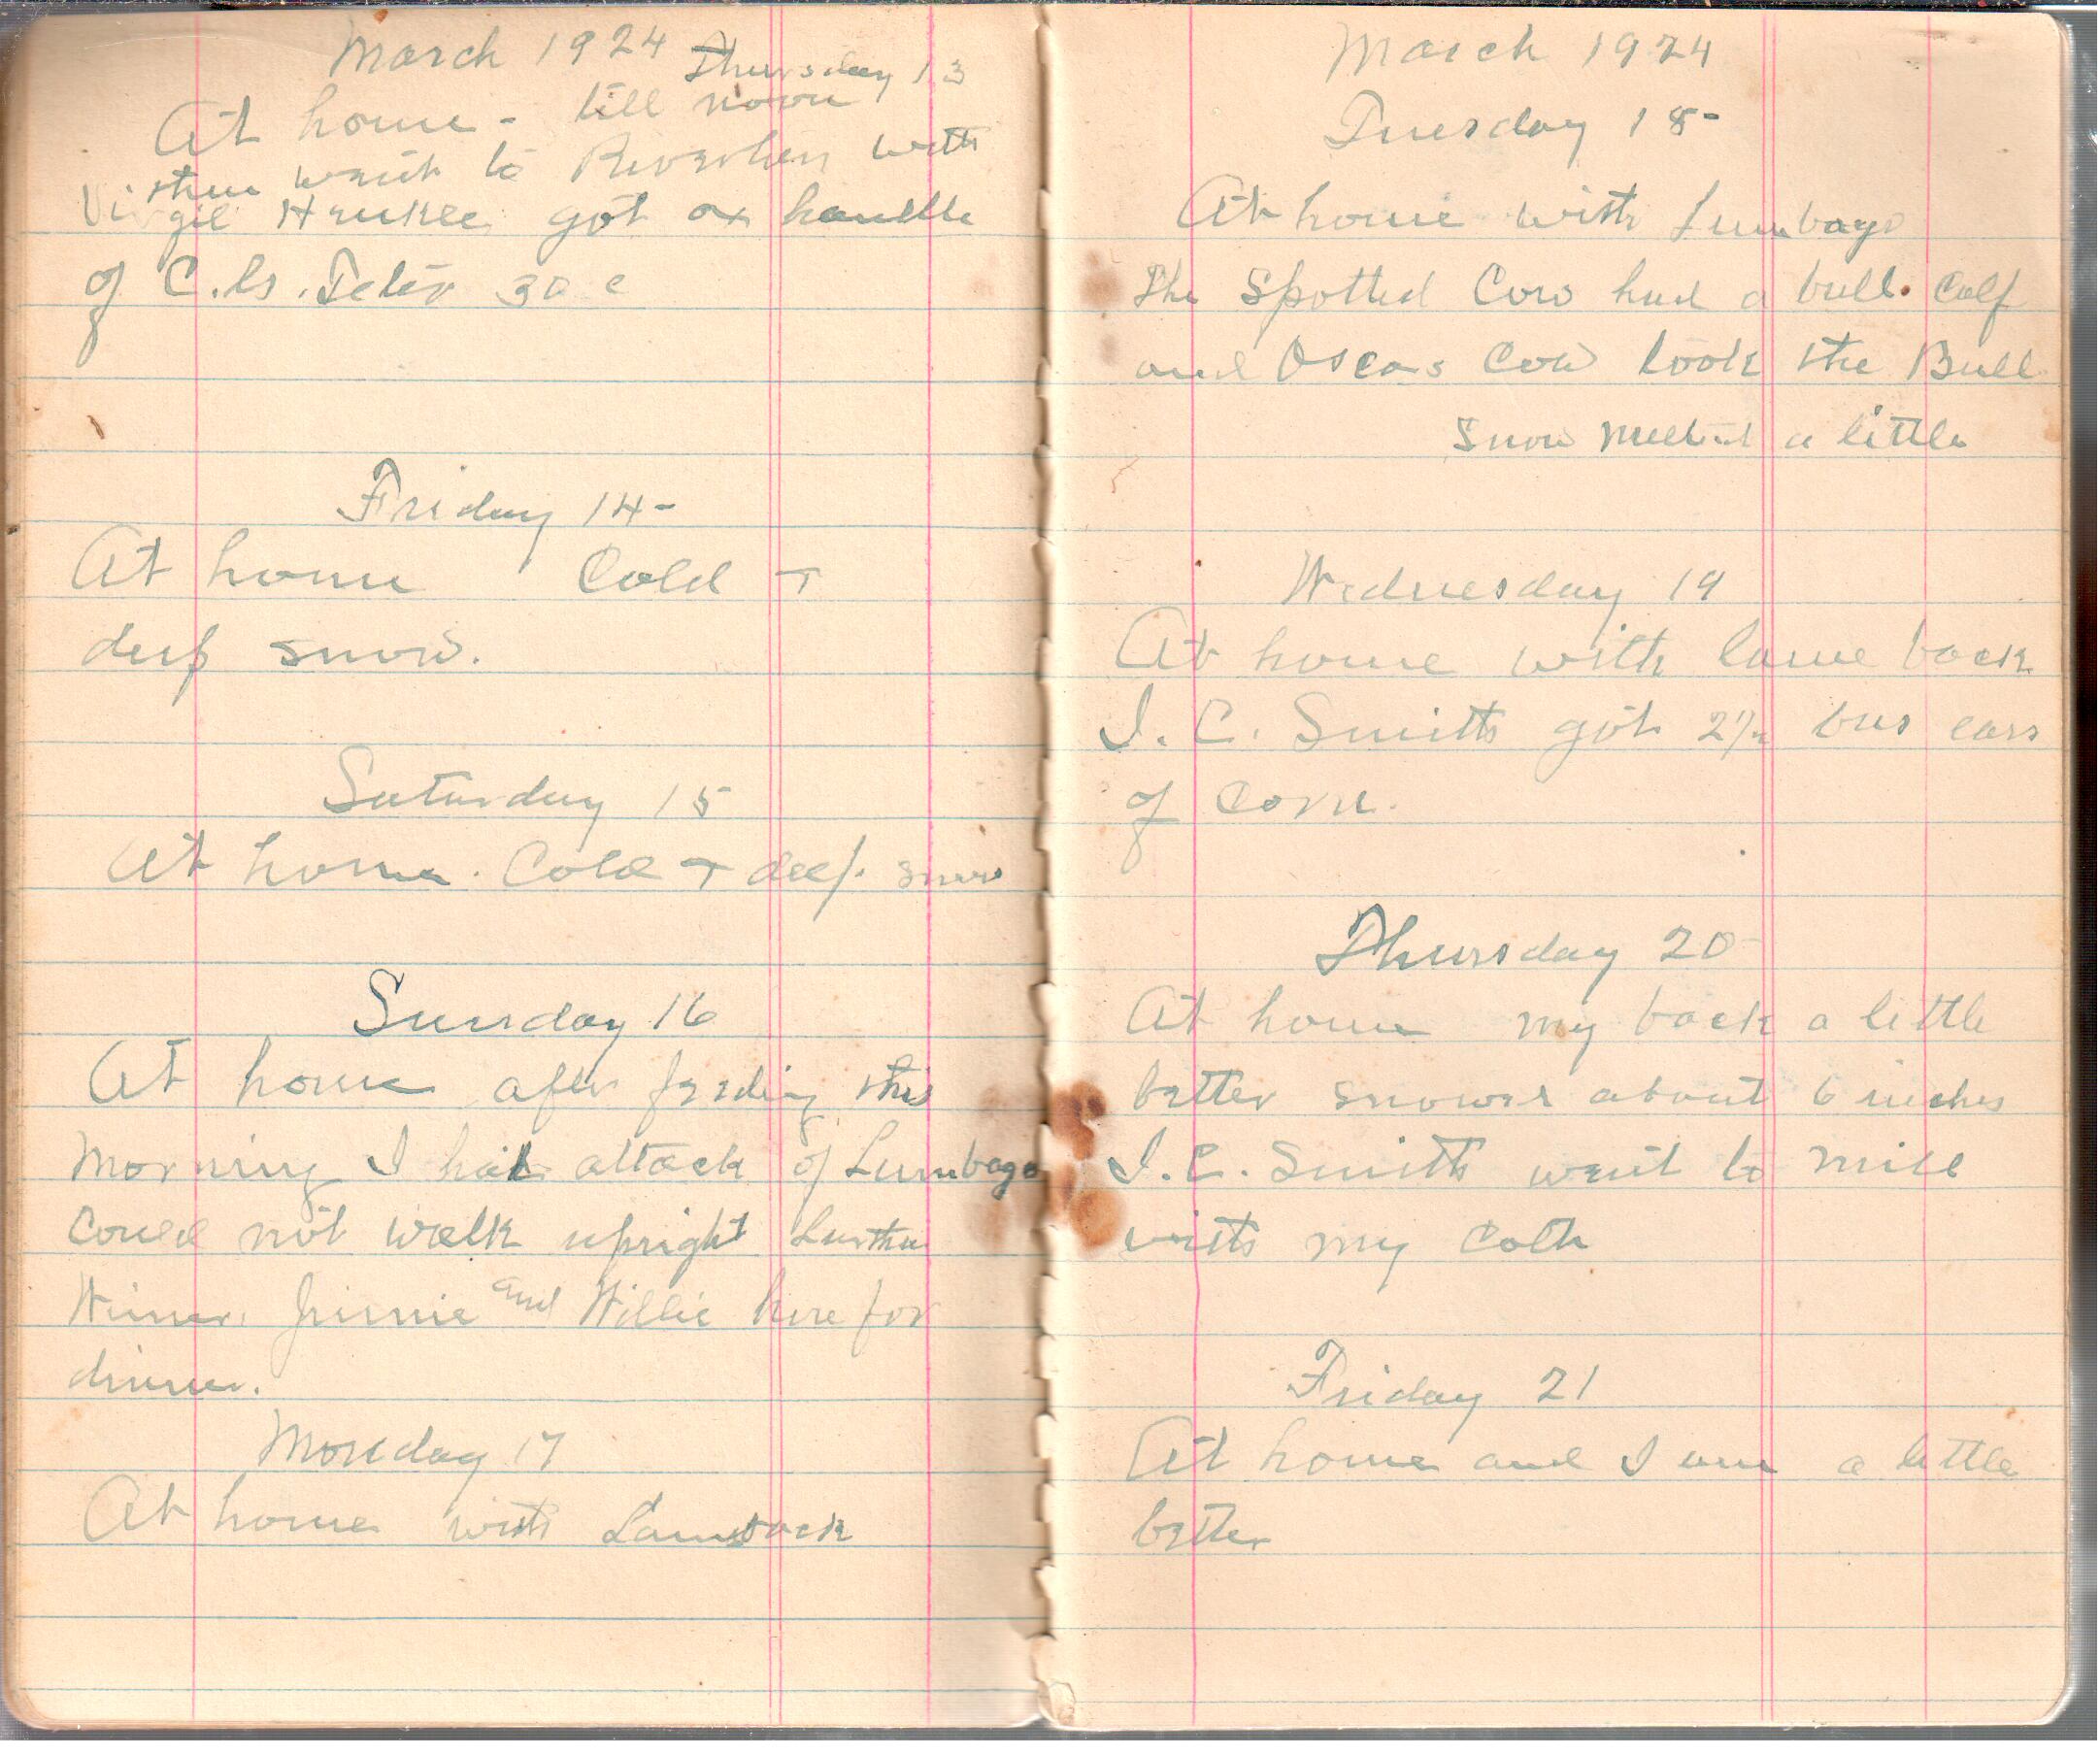 March 1924 Thursday 13
At home - till noon
then went to Riverton with
Virgil got ax handle
of C. Teter 30 c
Friday 14-
At home Cold +
deep snow.
Saturday 15
At home. Cold + deep snow
Sunday 16
At home after feeding this
morning I had attack of Lumbago
Could not walk upright Luther
Wimer. Jinnie and Willie here for
dinner.
Monday 17
At home with Lameback
March 1924
Tuesday 18-
At home with Lumbago
The Spotted Cow had a bull calf
and Oscars Cow took the Bull
Snow melted a little
Wednesday 19
At home with lame back
I. C. Smith got 2 1/2 bus ears
of Corn.
Thursday 20
At home my back a little
better snowed about 6 inches
I. C. Smith went to mill
with my Colt
Friday 21
At home and I am a little
better